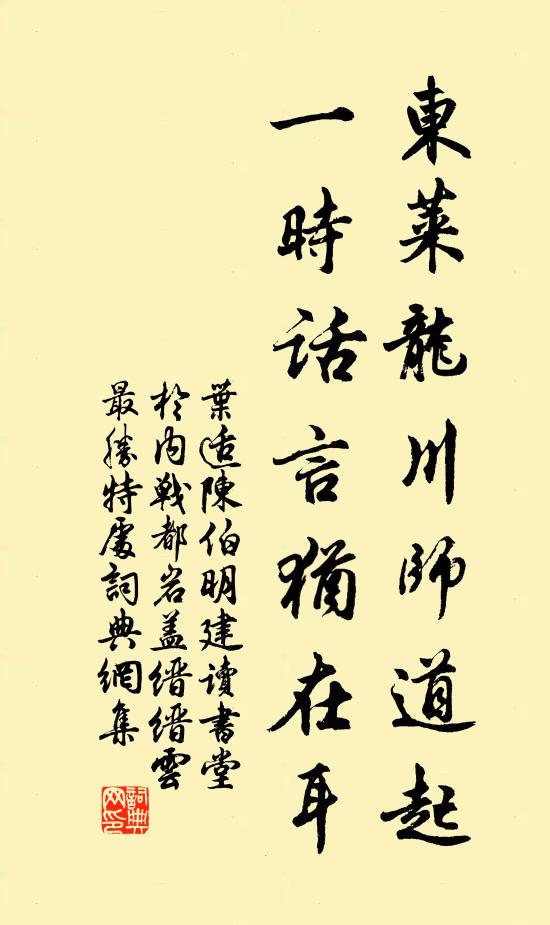 東萊龍川師道起
一時话言猶在耳
葉适陳伯明建讀書堂
於内戦都岩盖缙缙雲
最勝特處詞典網集
詞典网印